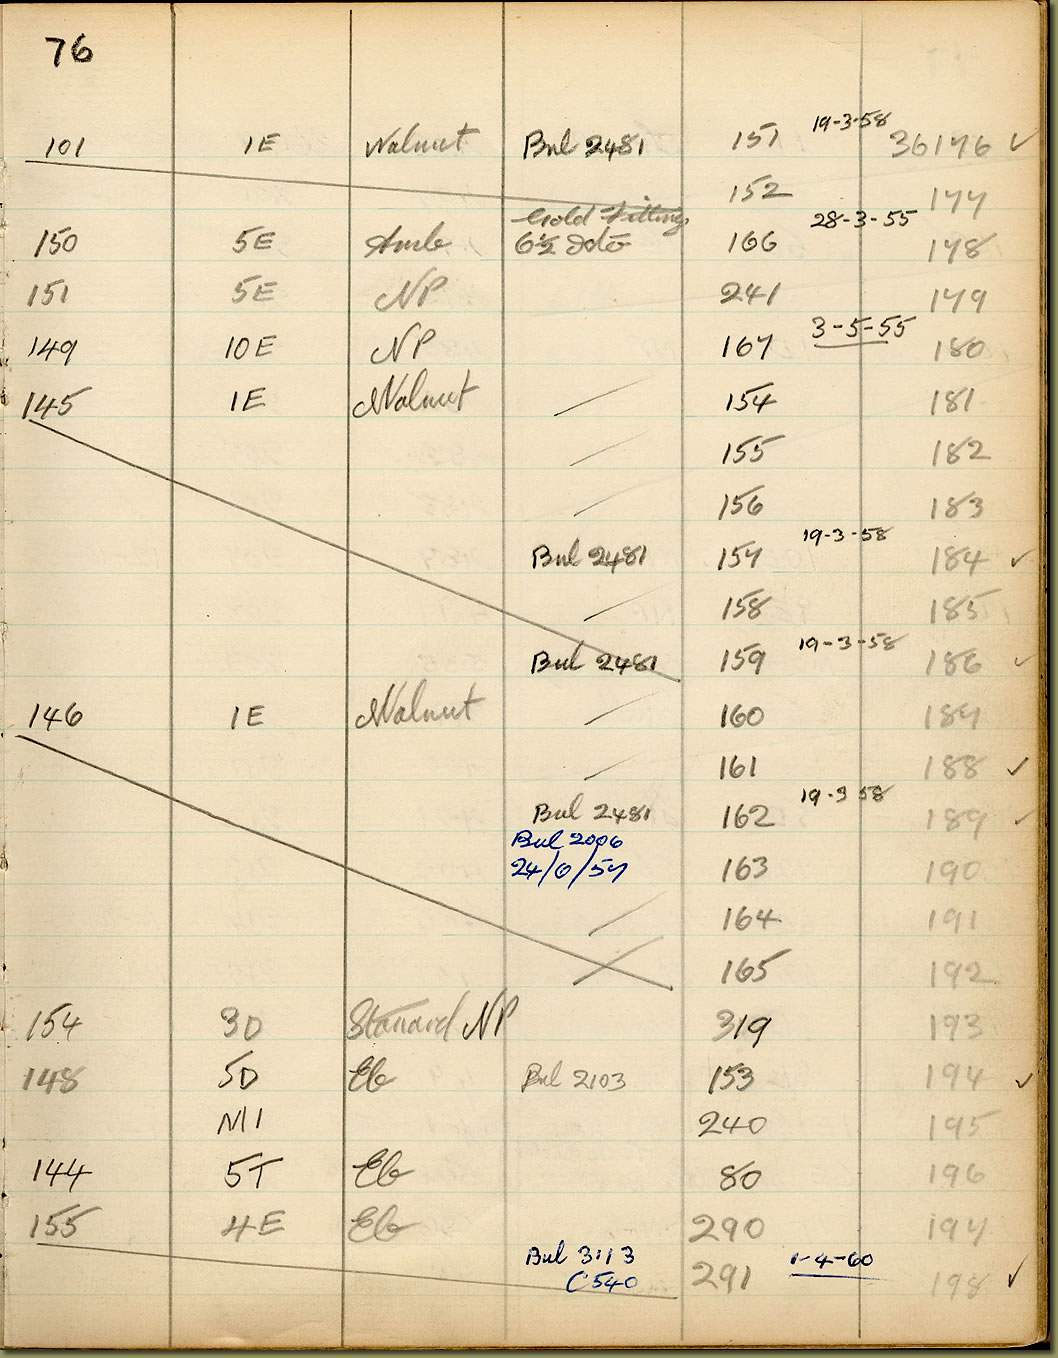 76
101 1E Walnut Bul 2481 151 19-3-58 36176 ✓
152 177
Gold Fittings 28-3-55
150 5E Amb 6½ 166 178
151 5E NP 241 179
149 10E NP 167 3-5-55 180
145 1E Walnut 154 181
155 182
156 183
Bul 2481 157 19-3-58 184 ✓
158 185
Bul 2481 159 19-3-58 186 ✓
146 1E Walnut 160 187
161 188 ✓
Bul 2481 162 19-3-58 189 ✓
Bul 2006
24/6/57 163 190
164 191
165 192
154 3D Stanard NP 319 193
148 5D Eb Bul 2103 153 194 ✓
M1 240 195
144 5T Eb 80 196
155 4E Eb 290 197
Bul 3113
C540 291 1-4-60 198 ✓